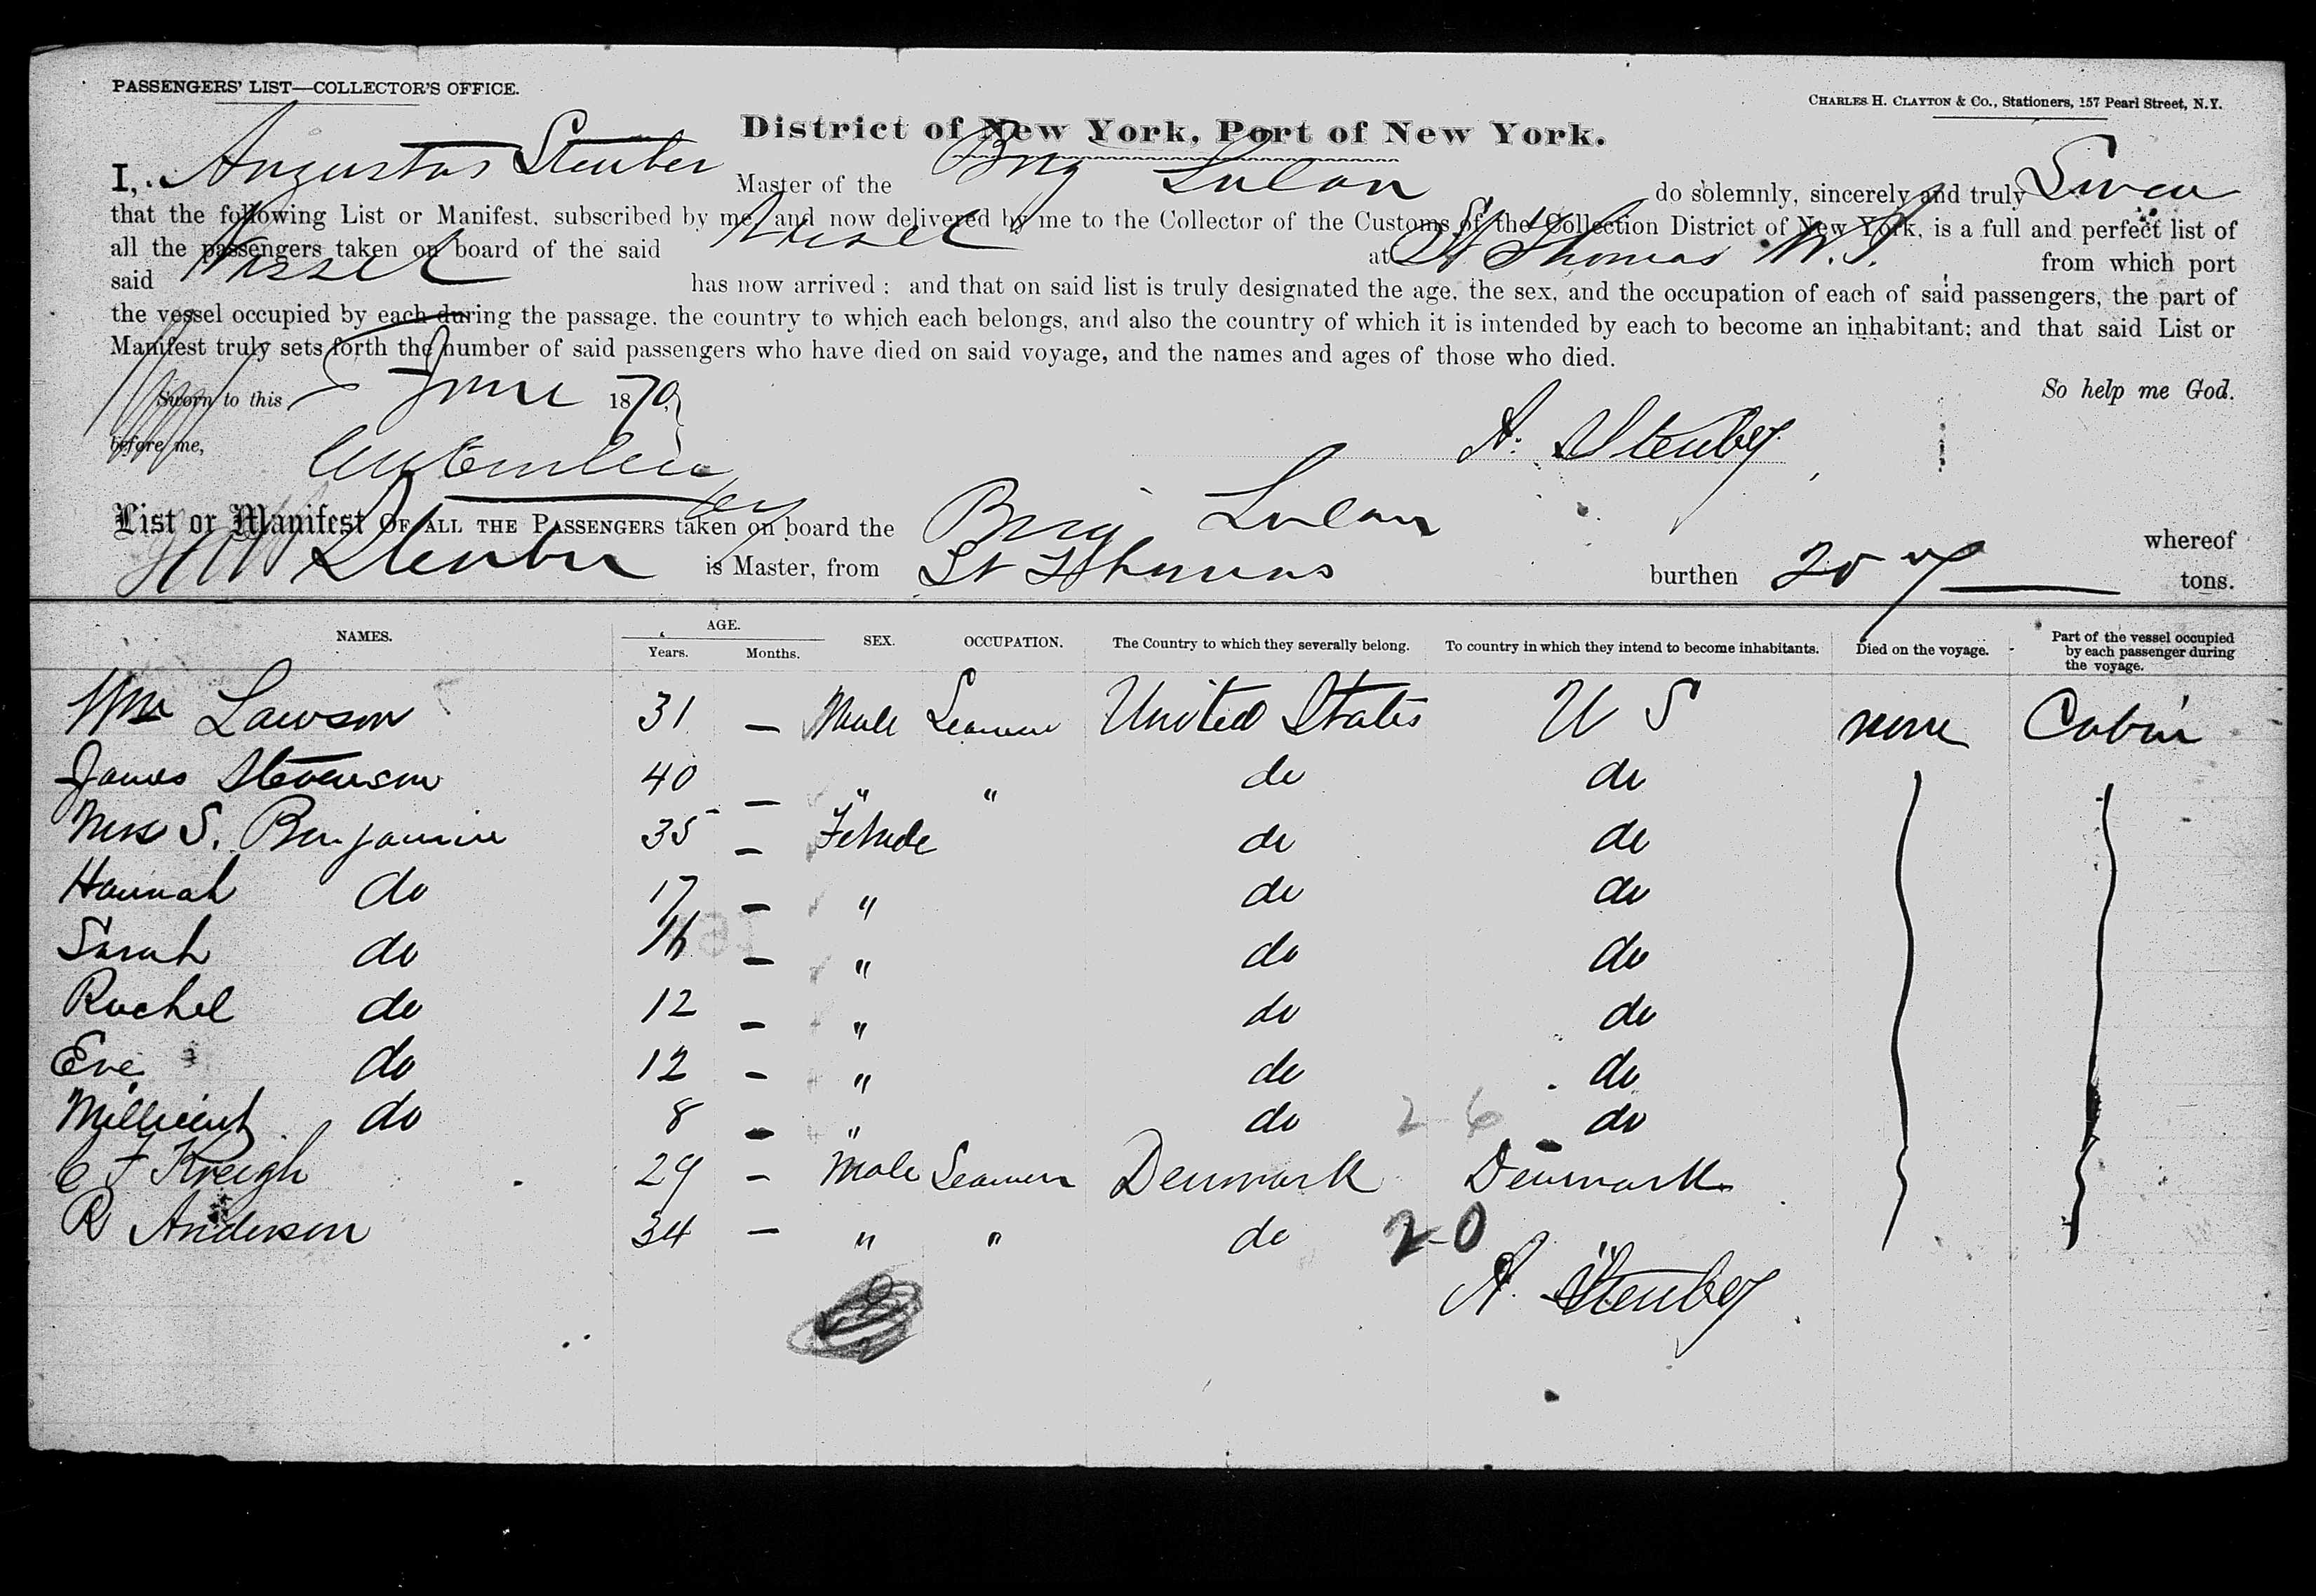 PASSENGERS' LIST—COLLECTOR'S OFFICE.
CHARLES H. CLAYTON & Co., Stationers, 157 Pearl Street, N.Y.
District of New York, Port of New York.
I, Augustus Steuber Master of the Brig Lulan do solemnly, sincerely and truly Swear
that the following List or Manifest, subscribed by me, and now delivered by me to the Collector of the Customs of the Collection District of New York, is a full and perfect list of
all the passengers taken on board of the said Vessel at St Thomas W.I. from which port
said Vessel has now arrived: and that on said list is truly designated the age, the sex, and the occupation of each of said passengers, the part of
the vessel occupied by each during the passage, the country to which each belongs, and also the country of which it is intended by each to become an inhabitant; and that said List or
Manifest truly sets forth the number of said passengers who have died on said voyage, and the names and ages of those who died.
Sworn to this June 1870 So help me God.
before me, A. Steuber
List or Manifest OF ALL THE PASSENGERS taken on board the Brig Lulan whereof
Steuber is Master, from St Thomas burthen tons.
NAMES. AGE. Years. Months. SEX. OCCUPATION. The Country to which they severally belong. To country in which they intend to become inhabitants. Died on the voyage. Part of the vessel occupied by each passenger during the voyage.
Wm Lawson 31 — Male Seaman United States U S none Cabin
James Stevenson 40 — " " do do
Mrs S. Benjamin 35 — Female do do
Hannah do 17 — " do do
Sarah do 16 — " do do
Rachel do 12 — " do do
Eve do 12 — " do do
Millicent do 8 — " do 2-6 do
C F Kreigh 29 — Male Seamen Denmark Denmark
R Anderson 34 — " " do 2-0 "
A. Steuber